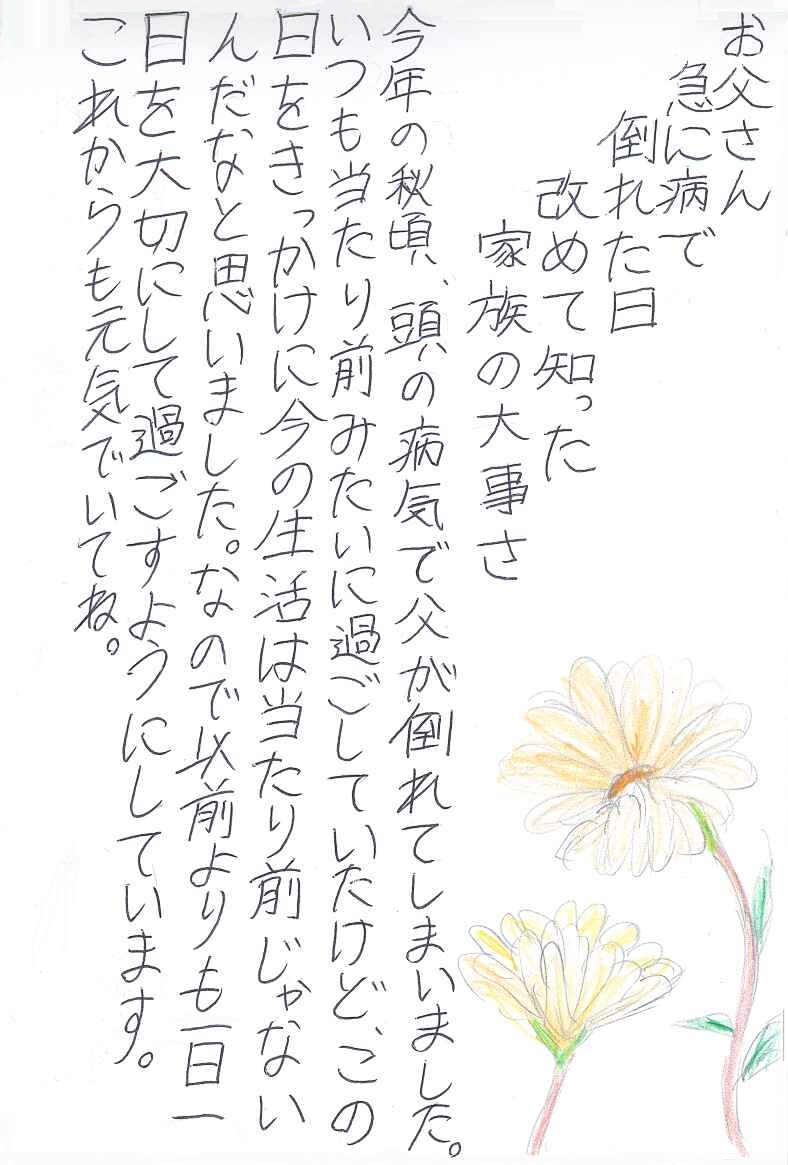 お父さん
急に病で
倒れた日
改めて知った
家族の大事さ
今年の秋頃、頭の病気で父が倒れてしまいました。
いつも当たり前みたいに過ごしていたけど、この
日をきっかけに今の生活は当たり前じゃない
んだなと思いました。なので以前よりも一日一
日を大切にして過ごすようにしています。
これからも元気でいてね。